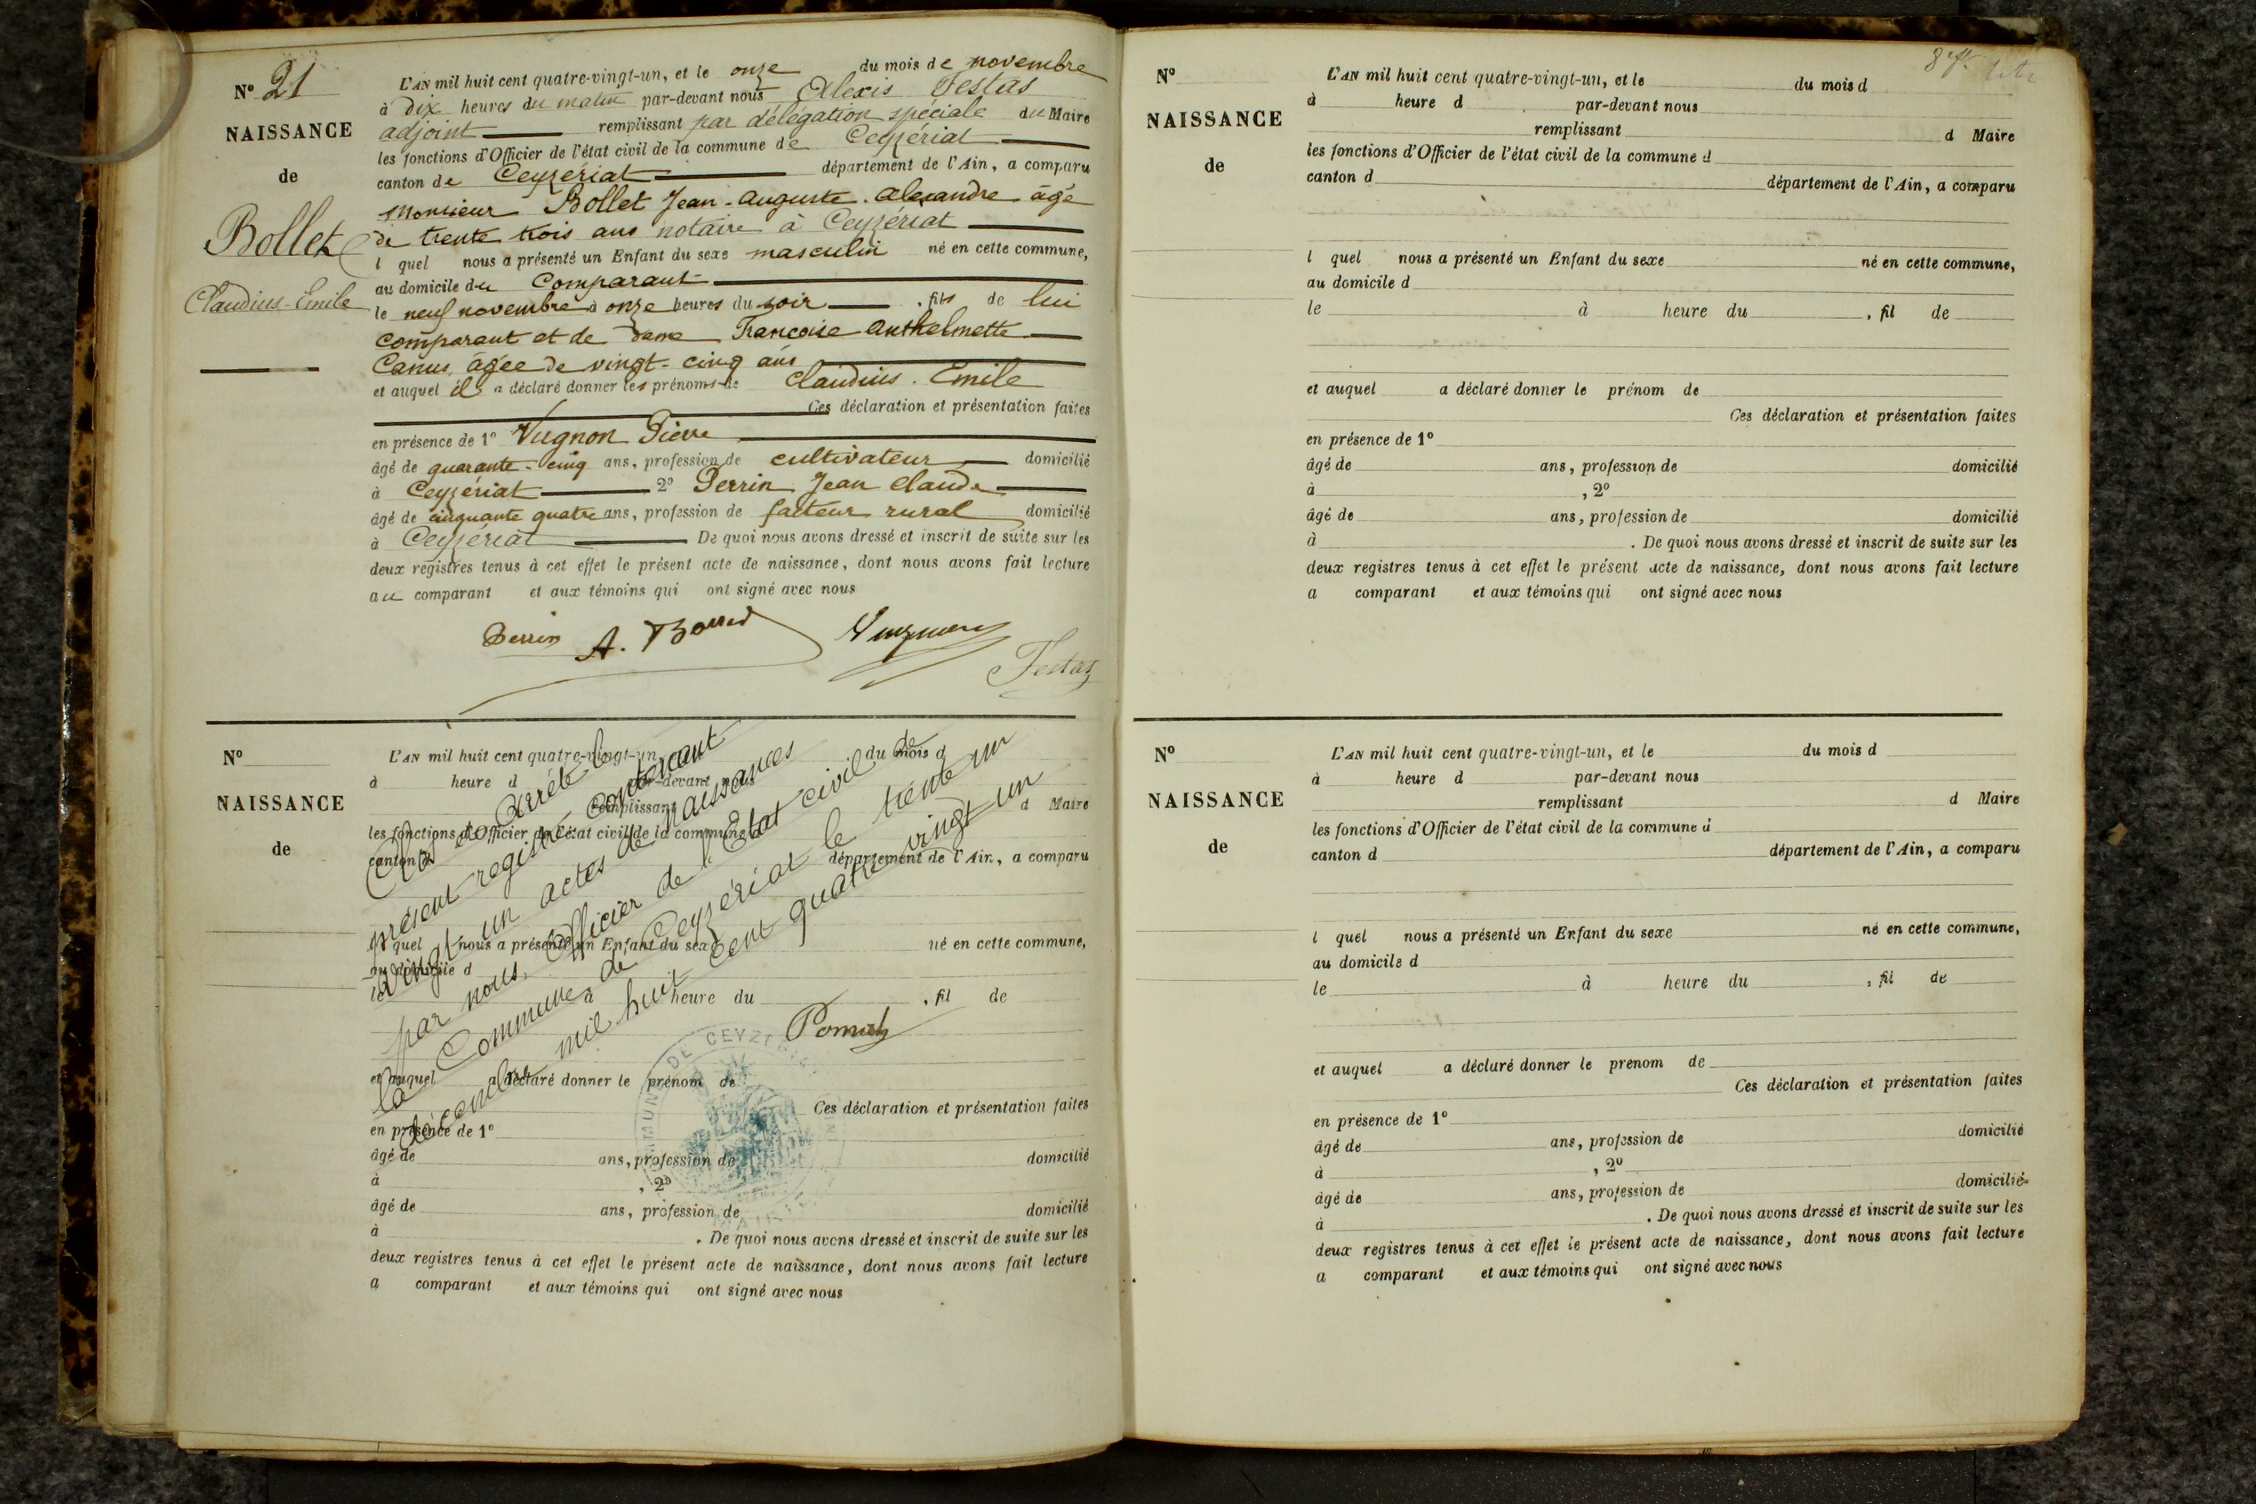 N° 21
NAISSANCE
de
Bollet
Claudius-Emile
L'AN mil huit cent quatre-vingt-un, et le onze du mois de novembre
à dix heures du matin par-devant nous Alexis Festas
adjoint remplissant par délégation spéciale du Maire
les fonctions d'Officier de l'état civil de la commune de Ceyzériat
canton de Ceyzériat département de l'Ain, a comparu
Monsieur Bollet Jean-Auguste-Alexandre âgé
de trente trois ans notaire à Ceyzériat
l quel nous a présenté un Enfant du sexe masculin né en cette commune,
au domicile du Comparant
le neuf novembre à onze heures du soir , fils de lui
comparant et de dame Françoise Anthelmette
Canus, âgée de vingt-cinq ans
et auquel il a déclaré donner les prénoms de Claudius-Emile
Ces déclaration et présentation faites
en présence de 1° Vugnon Pierre
âgé de quarante-cinq ans, profession de cultivateur domicilié
à Ceyzériat 2° Perrin Jean Claude
âgé de cinquante quatre ans, profession de facteur rural domicilié
à Ceyzériat De quoi nous avons dressé et inscrit de suite sur les
deux registres tenus à cet effet le présent acte de naissance, dont nous avons fait lecture
au comparant et aux témoins qui ont signé avec nous
Perrin A. Vugnon
Festas
N°
NAISSANCE
de
L'AN mil huit cent quatre-vingt-un du mois d
à heure d par-devant nous
remplissant d Maire
les fonctions d'Officier de l'état civil de la commune d
canton d département de l'Ain, a comparu
l quel nous a présenté un Enfant du sexe né en cette commune,
au domicile d
le à heure du , fil de
et auquel a déclaré donner le prénom de
Ces déclaration et présentation faites
en présence de 1°
âgé de ans, profession de domicilié
à , 2°
âgé de ans, profession de domicilié
à . De quoi nous avons dressé et inscrit de suite sur les
deux registres tenus à cet effet le présent acte de naissance, dont nous avons fait lecture
a comparant et aux témoins qui ont signé avec nous
Clos et arrêté le
présent registre contenant
vingt-un actes de naissances
par nous, Officier de l'Etat civil de
la Commune de Ceyzériat le trente un
décembre mil huit cent quatre vingt un
DE CEYZÉRIAT
MAIRIE
N°
NAISSANCE
de
L'AN mil huit cent quatre-vingt-un, et le du mois d
à heure d par-devant nous
remplissant d Maire
les fonctions d'Officier de l'état civil de la commune d
canton d département de l'Ain, a comparu
l quel nous a présenté un Enfant du sexe né en cette commune,
au domicile d
le à heure du , fil de
et auquel a déclaré donner le prénom de
Ces déclaration et présentation faites
en présence de 1°
âgé de ans, profession de domicilié
à , 2°
âgé de ans, profession de domicilié
à . De quoi nous avons dressé et inscrit de suite sur les
deux registres tenus à cet effet le présent acte de naissance, dont nous avons fait lecture
a comparant et aux témoins qui ont signé avec nous
N°
NAISSANCE
de
L'AN mil huit cent quatre-vingt-un, et le du mois d
à heure d par-devant nous
remplissant d Maire
les fonctions d'Officier de l'état civil de la commune d
canton d département de l'Ain, a comparu
l quel nous a présenté un Enfant du sexe né en cette commune,
au domicile d
le à heure du , fil de
et auquel a déclaré donner le prenom de
Ces déclaration et présentation faites
en présence de 1°
âgé de ans, profession de domicilié
à , 2°
âgé de ans, profession de domicilié
à . De quoi nous avons dressé et inscrit de suite sur les
deux registres tenus à cet effet le présent acte de naissance, dont nous avons fait lecture
a comparant et aux témoins qui ont signé avec nous